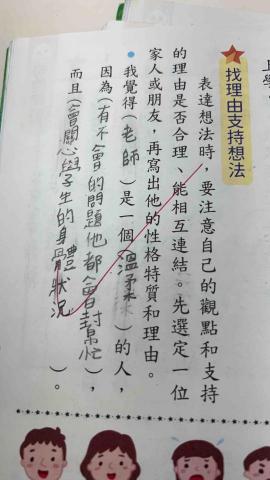 找理由支持想法
表達想法時，要注意自己的觀點和支持
的理由是否合理、能相互連結。先選定一位
家人或朋友，再寫出他的性格特質和理由。
我覺得（老師）是一個（溫柔）的人，
因為（有不會的問題他都會封幫忙），
而且（會關心學生的身體狀況）。